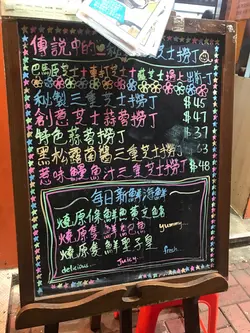 傳說中的三重芝士撈丁
巴馬臣芝士車打芝士
芝士撈上出前一丁
秘製三重芝士撈丁 $45
創意芝士蒜蓉撈丁 $47
特色蒜蓉撈丁 $37
黑松露菌醬三重芝士撈丁 $63
惹味鰻魚汁三重芝士撈丁 $48
每日新鮮海鮮
燒原條鮮魷
燒原隻鮮鮑魚 yummy
燒原隻鮮聖子皇 fresh
delicious Juicy